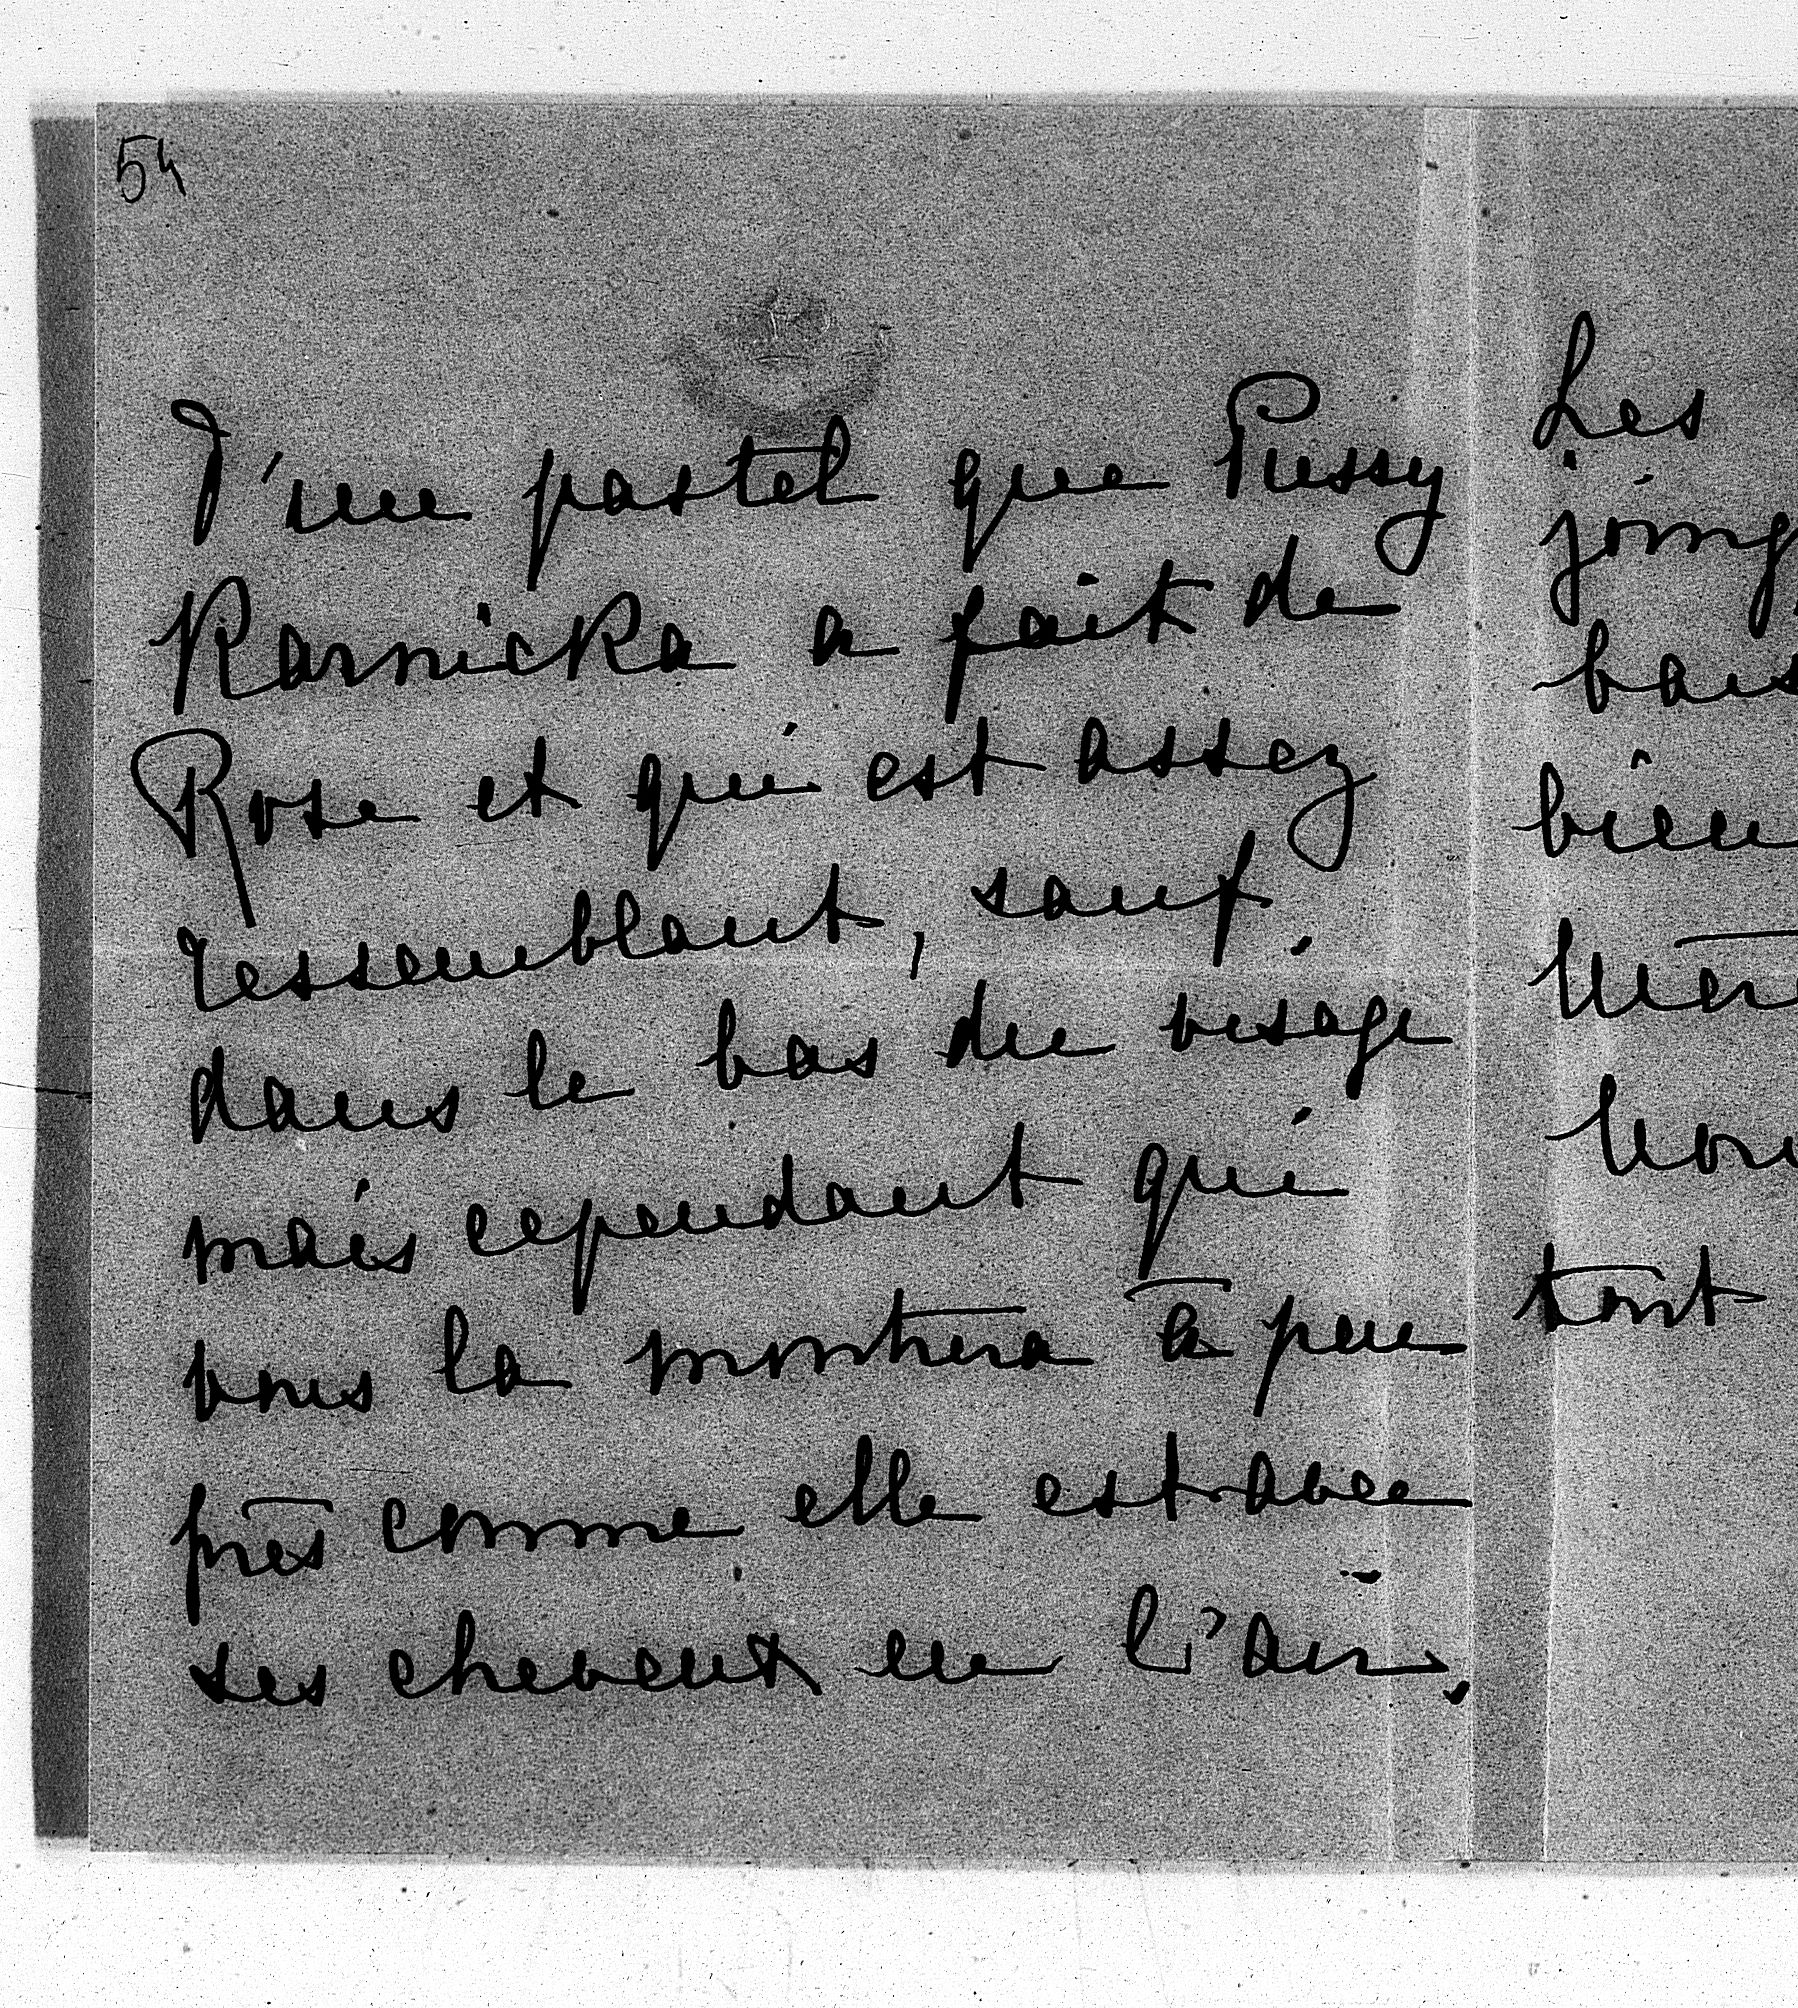 54
d'un pastel que Pussy
Karnicka a fait de
Rose et qui est assez
ressemblant, sauf
dans le bas du visage
mais cependant qui
vous la montrera à peu
près comme elle est avec
ses cheveux en l'air.
Les
bien
tont